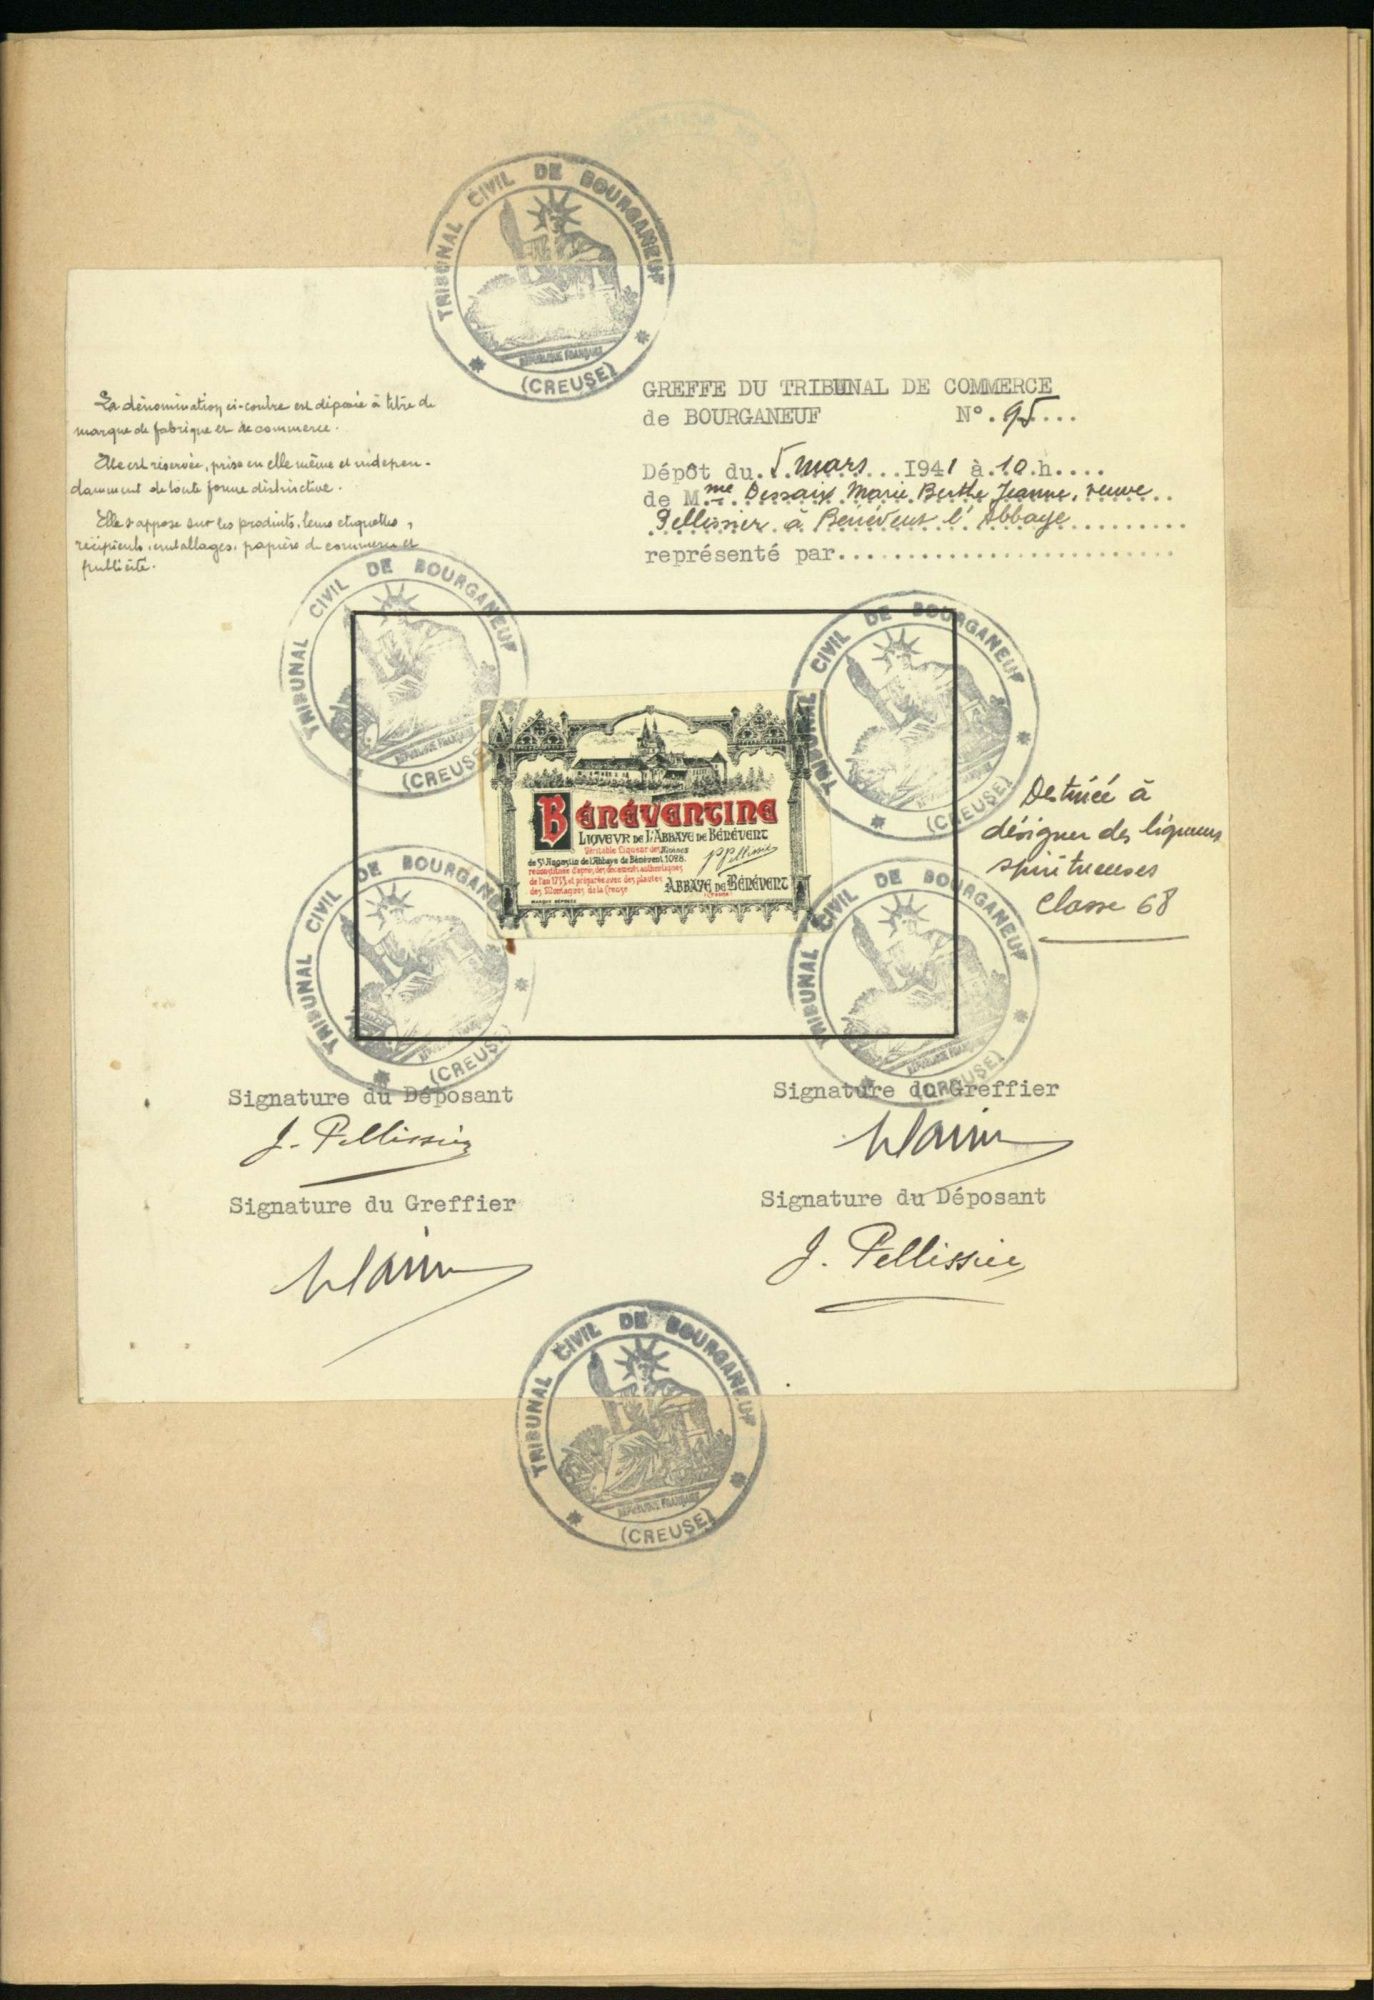 TRIBUNAL CIVIL DE BOURGANEUF
RÉPUBLIQUE FRANÇAISE
(CREUSE)
La dénomination ci-contre est déposée à titre de
marque de fabrique et de commerce.
Elle est réservée, prise en elle même et indépen-
damment de toute forme distinctive.
Elle s'appose sur les produits, leurs étiquettes,
récipients, emballages, papiers de commerce et
publicité.
GREFFE DU TRIBUNAL DE COMMERCE
de BOURGANEUF N° 95
Dépôt du 5 mars 1941 à 10 h....
de Mme Dessaix Marie Berthe Jeanne, veuve
Pellissier à Bénévent l'Abbaye
représenté par........................
TRIBUNAL CIVIL DE BOURGANEUF
RÉPUBLIQUE FRANÇAISE
(CREUSE)
TRIBUNAL CIVIL DE BOURGANEUF
(CREUSE)
BÉNÉVENTINE
LIQVEVR DE L'ABBAYE DE BÉNÉVENT
Véritable Liqueur des Moines
de St Augustin de l'Abbaye de Bénévent 1028.
reconstituée d'après des documents authentiques
de l'an 1713 et préparée avec des plantes
des Montagnes de la Creuse
P Pellissier
ABBAYE DE BÉNÉVENT
(Creuse)
MARQUE DÉPOSÉE
Destinée à
désigner des liqueurs
spiritueuses
classe 68
TRIBUNAL CIVIL DE BOURGANEUF
(CREUSE)
TRIBUNAL CIVIL DE BOURGANEUF
RÉPUBLIQUE FRANÇAISE
(CREUSE)
Signature du Déposant
J. Pellissier
Signature du Greffier
Signature du Greffier
Signature du Déposant
J. Pellissier
TRIBUNAL CIVIL DE BOURGANEUF
RÉPUBLIQUE FRANÇAISE
(CREUSE)